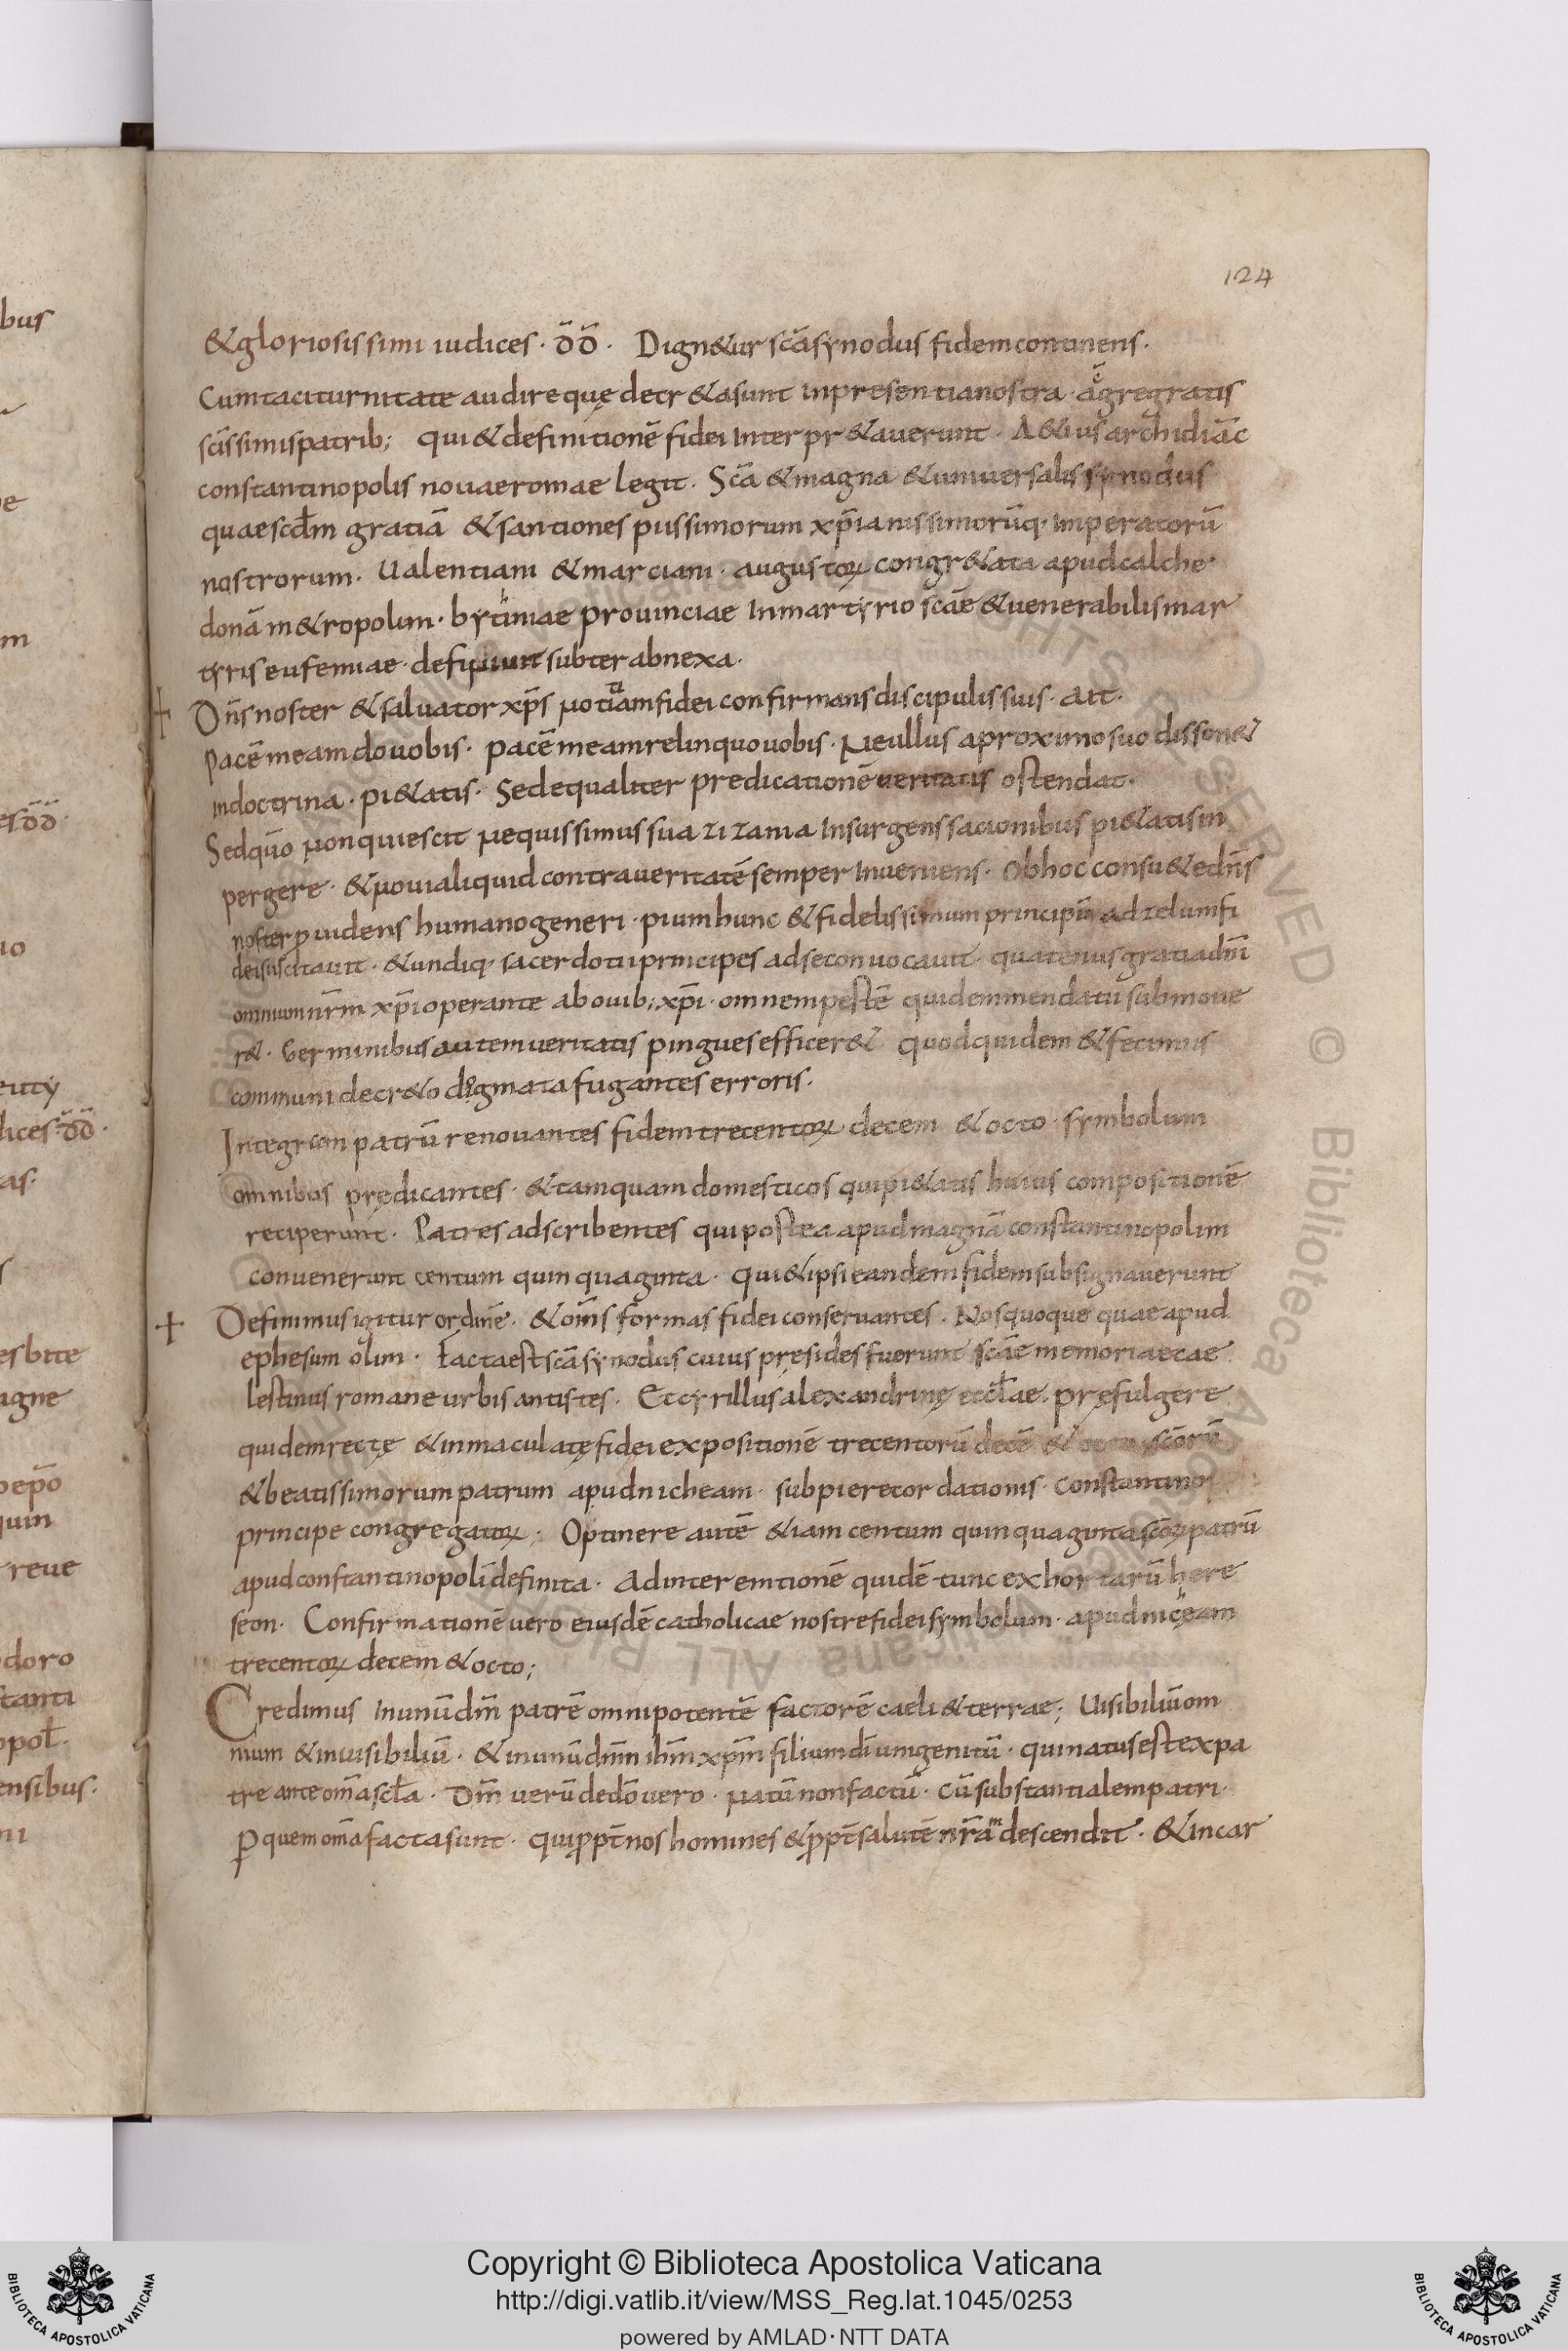 124
&gloriosissimi iudices · d̄d̄ · Dign&ur sc̄a synodus fidem continens ·
Cum taciturnitate audire quę decr&a sunt in presentia nostra · agregratis
sc̄issimis patrib; qui & definitionē fidei interpr&auerunt · A&ius archidiāc
constantinopolis nouae romae legit · Sc̄a & magna & uniuersalis synodus
quae scd̄m gratiā & santiones piissimorum xp̄ianissimorūq· imperatorū
nostrorum · Ualentiani & marciani · augustoꝝ congr&ata apud calche
donā m&ropolim · bytiniae prouinciae in martyrio sc̄ae & uenerabilis mar
tyris eufemiae · definiuit subter abnexa ·
Dn̄s noster & saluator xp̄s notiam fidei confirmans discipulis suis · ait ·
Pacē meam do uobis · pacē meam relinquo uobis · Ne ullus a proximo suo disson&
in doctrina · pi&atis · Sed equaliter predicationē ueritatis ostendat ·
Sed qūo non quiescit nequissimus sua zizania insurgens sacionibus pi&atis in
pergere · & noui aliquid contra ueritatē semper inueniens · Ob hoc consu&e dn̄s
noster ꝓuidens humano generi · pium hunc & fidelissimum principū ad zelum fi
dei suscitauit · & undiq· sacerdotii principes ad se conuocauit · quatenus gratia dn̄i
omnium nr̄m xp̄i operante ab ouib; xp̄i · omnem pestē quidem mendatii submoue
r& · Germinibus autem ueritatis pingues efficer& quod quidem & fecimus
communi decr&o dogmata fugantes erroris ·
Integram patrū renouantes fidem trecentoꝝ decem & octo · symbolum
omnibus prędicantes · & tamquam domesticos qui pi&atis huius compositionē
reciperunt · Patres adscribentes qui postea apud magnā constantinopolim
conuenerunt centum quinquaginta · qui & ipsi eandem fidem subsignauerunt
Definimus igitur ordinē · & om̄s formas fidei conseruantes · Nos quoque quae apud
ephesum olim · facta est sc̄a synodus cuius pręsides fuerunt sc̄ae memoriae cae
lestinus romane urbis antistes · Et cyrillus alexandrinę eccl̄ae · pręfulgere
quidem rectę & inmaculatę fidei expositionē trecentorū decē & octo sc̄orū
& beatissimorum patrum apud nicheam · sub pie recordationis · constantino
principe congregatoꝝ ; Optinere autē &iam centum quinquaginta sc̄oꝝ patrū
apud constantinopolī definita · Ad interemtionē quidē tunc exhortarū here
seon · Confirmationē uero eiusdē catholicae nostre fidei symbolum · apud niceam
trecentoꝝ decem & octo ;
Credimus in unū dm̄ patrē omnipotentē factorē caeli & terrae ; Uisibiliū om
nium & inuisibiliū · & in unū dn̄m ih̄m xp̄m filium dī unigenitū · qui natus est ex pa
tre ante om̄a scl̄a · Dm̄ uerū de dō uero · natū non factū · cū substantialem patri ·
ꝑ quem om̄a facta sunt · qui ꝓpt̄ nos homines & ꝓpt̄ salutē nr̄am descendit · & incar
Copyright © Biblioteca Apostolica Vaticana
http://digi.vatlib.it/view/MSS_Reg.lat.1045/0253
powered by AMLAD·NTT DATA